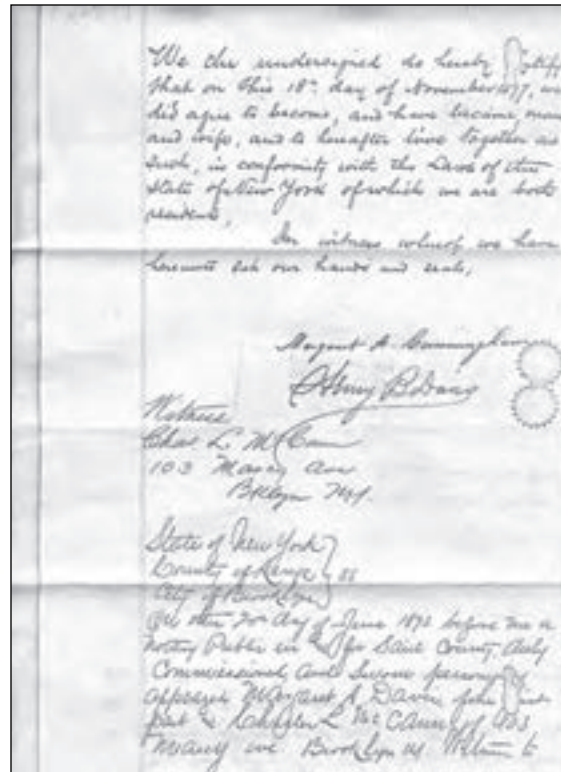 We the undersigned do hereby
that on this 18th day of November 1877, we
did agree to become, and have become, man
and wife, and to hereafter live together as
such, in conformity with the Laws of the
State of New York of which we are both
resident,
In witness whereof we have
hereunto set our hands and seals,
Margaret A. Cunningham
Henry B. Davis
Witness
Chas L. McCann
103 Marcy Ave
Bklyn NY.
State of New York
County of Kings ss
City of Brooklyn
On this day of June 1893 before me a
Notary Public in & for said County, duly
Commissioned and Sworn
appeared Margaret A. Davis
part & Charles L. McCann of 103
Marcy ave. Brooklyn NY Witness to